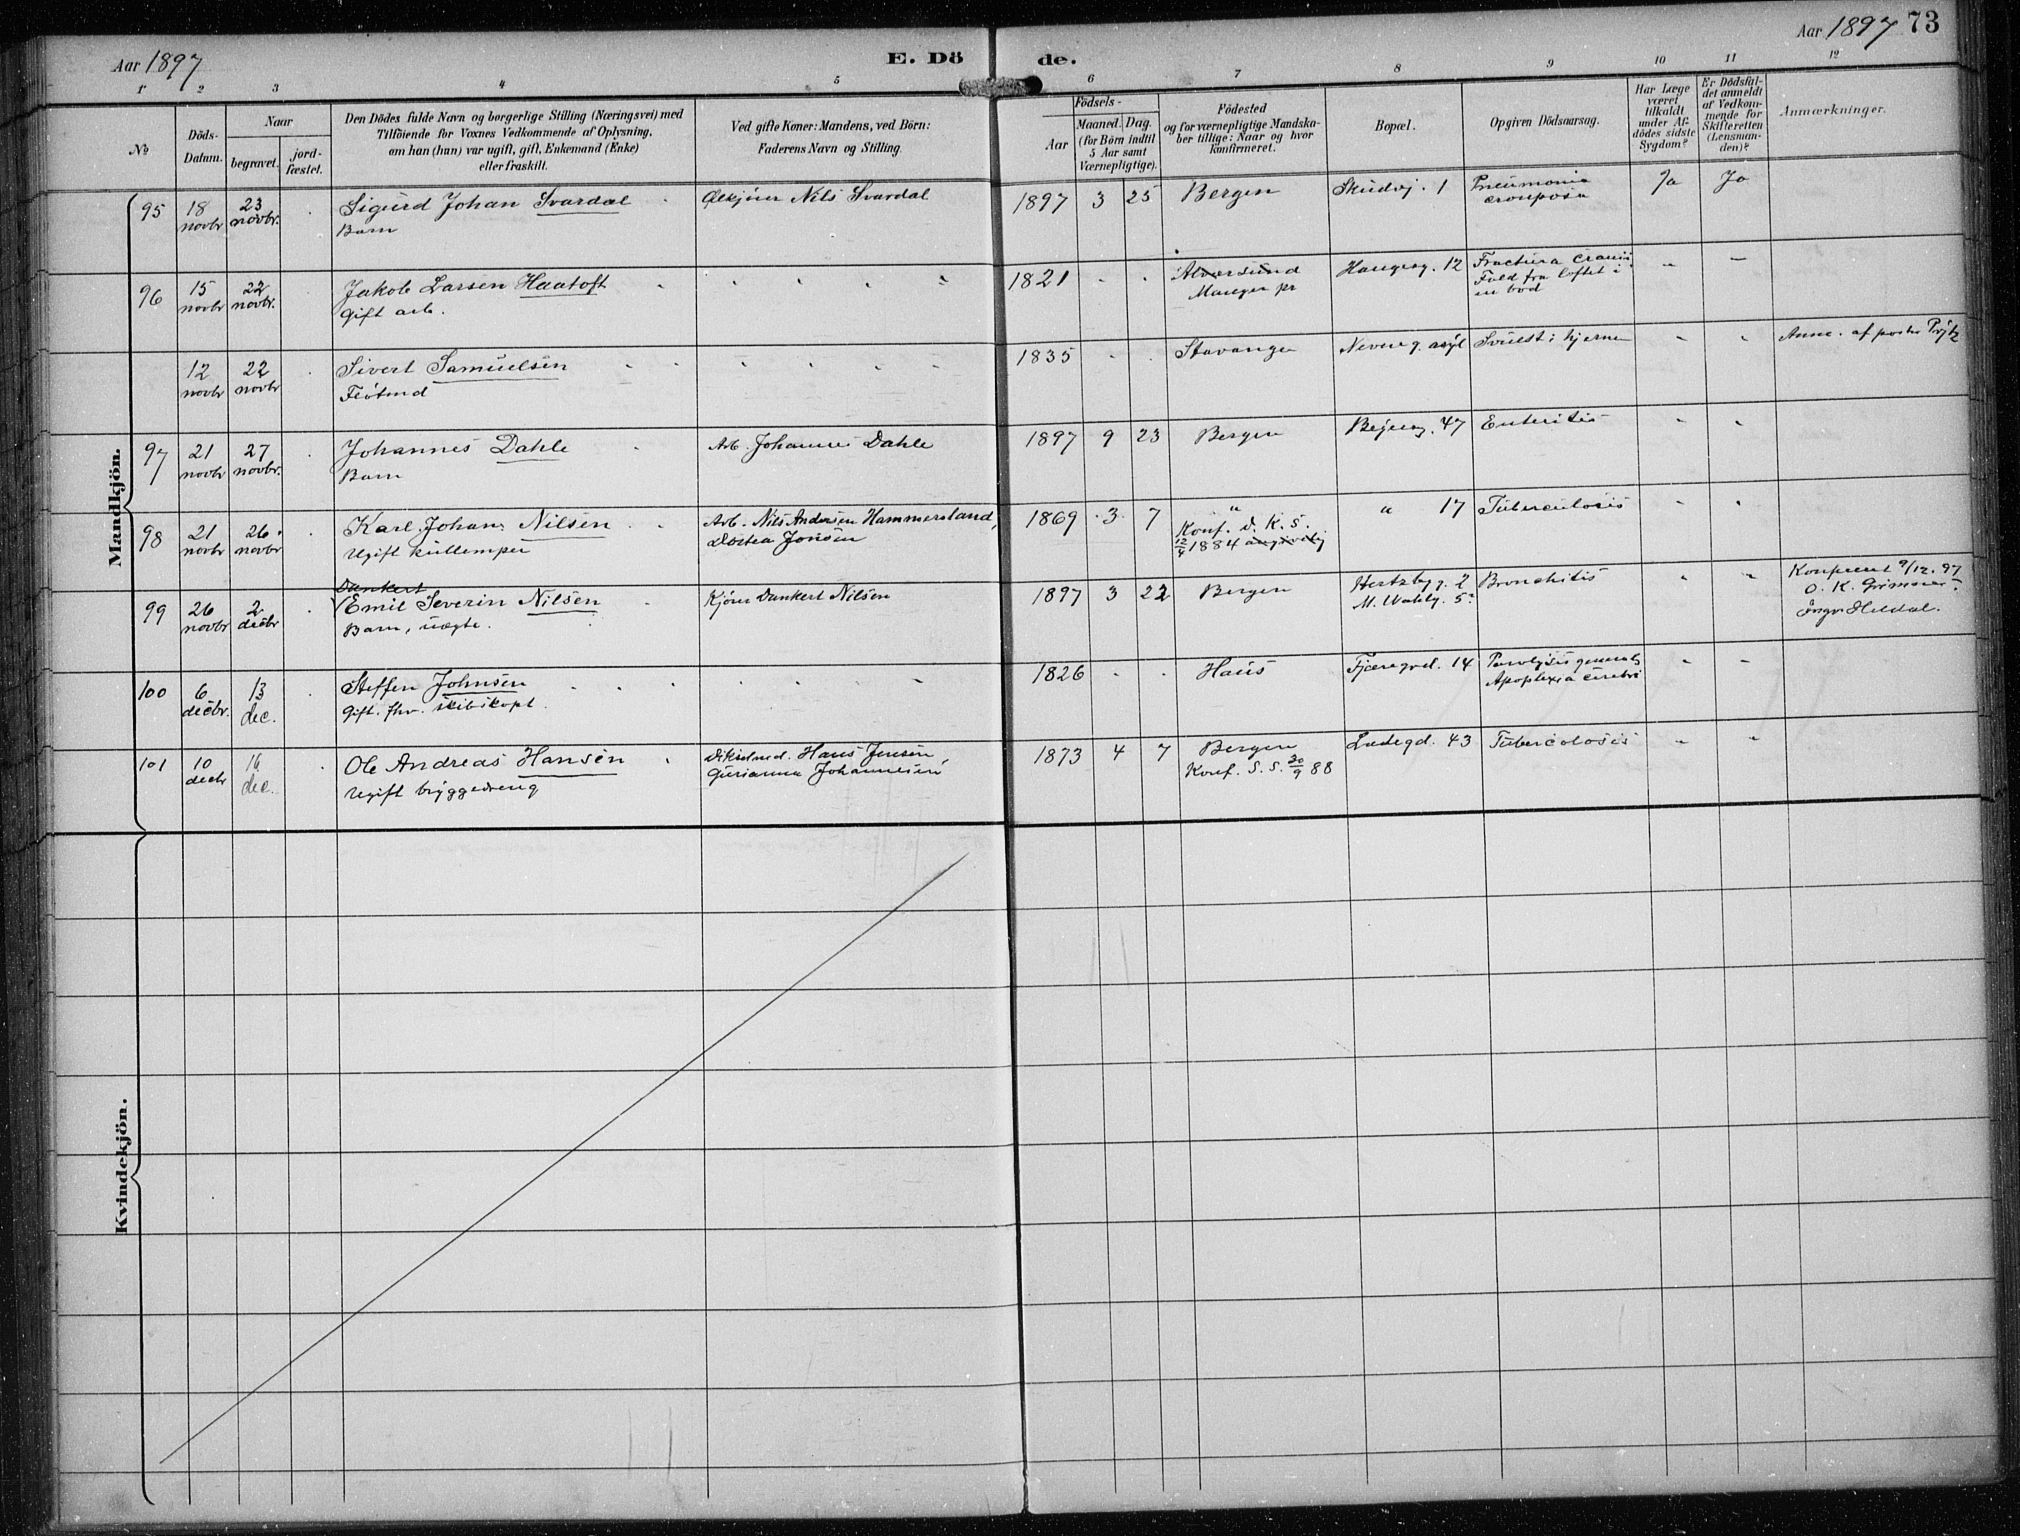 Aar 1897
E. Dö
de.
Aar 1897 73
1 2 3 4 5 6 7 8 9 10 11 12
No
Döds-
Datum.
Naar
begravet.
jord-
fæstet.
Den Dödes fulde Navn og borgerlige Stilling (Næringsvei) med
Tilföiende for Voxnes Vedkommende af Oplysning,
om han (hun) var ugift, gift, Enkemand (Enke)
eller fraskilt.
Ved gifte Koner: Mandens, ved Börn:
Faderens Navn og Stilling.
Födsels-
Aar
Maaned. Dag.
(for Börn indtil
5 Aar samt
Værnepligtige).
Födested
og for værnepligtige Mandska-
ber tillige: Naar og hvor
konfirmeret.
Bopæl.
Opgiven Dödsaarsag.
Har Læge
været
tilkaldt
under Af-
dödes sidste
Sygdom?
Er Dödsfal-
det anmeldt
af Vedkom-
mende for
Skifteretten
(Lensman-
den)?
Anmærkninger.
Mandkjön.
95 18 novbr 23 novbr. Sigurd Johan Svardal
Barn
Nils Svardal
1897 3 25 Bergen
Skudvj. 1
Pneumonia
crouposa
Ja Ja
96 15 novbr 22 novbr. Jakob Larsen Haatoft
Gift arb.
1821
Alversund
Manger pr
Haugeg. 12
Fractura cranii
Fald fra loftet i
en bod
12 novbr 22 novbr Sivert Samuelsen
1835 Stavanger
Neveng. asyl
Svulst i hjernen
Anm. af
97 21 novbr 27 novbr. Johannes Dahle
Barn
Arb. Johannes Dahle
1897 9 23 Bergen
47
Enteritis
98 21 novbr 26 novbr Karl Johan Nilsen
Ugift kullemper
Arb. Nils Andersen Hammersland,
Dortea Jonsen
1869 3 7 "
Konf. d. K. S.
12/4 1884
" 17
Tuberculosis
99 26 novbr 2 decbr Dankert
Emil Severin Nilsen
Barn, uægte.
Kjører Dankert Nilsen
1897 3 22 Bergen
Hertzbg g. 2
M. Wahlg. 5
Bronchitis
Konfirent 9/12. 97
O. K. Grimsnes
Heldal.
100 6 decbr. 13 dec. Steffen Johnsen
Gift. fhv. skibskapt.
1826 Haus
Fjæregrd. 14
Paralysis generalis
Apoplexia cerebri
101 10 decbr 16 dec. Ole Andreas Hansen
Ugift bryggedreng
Hans Jensen,
Gurianna Johannesen
1873 4 7 Bergen
Konf. S. S. 30/9 88
Ladegd. 43
Tuberculosis
Kvindekjön.